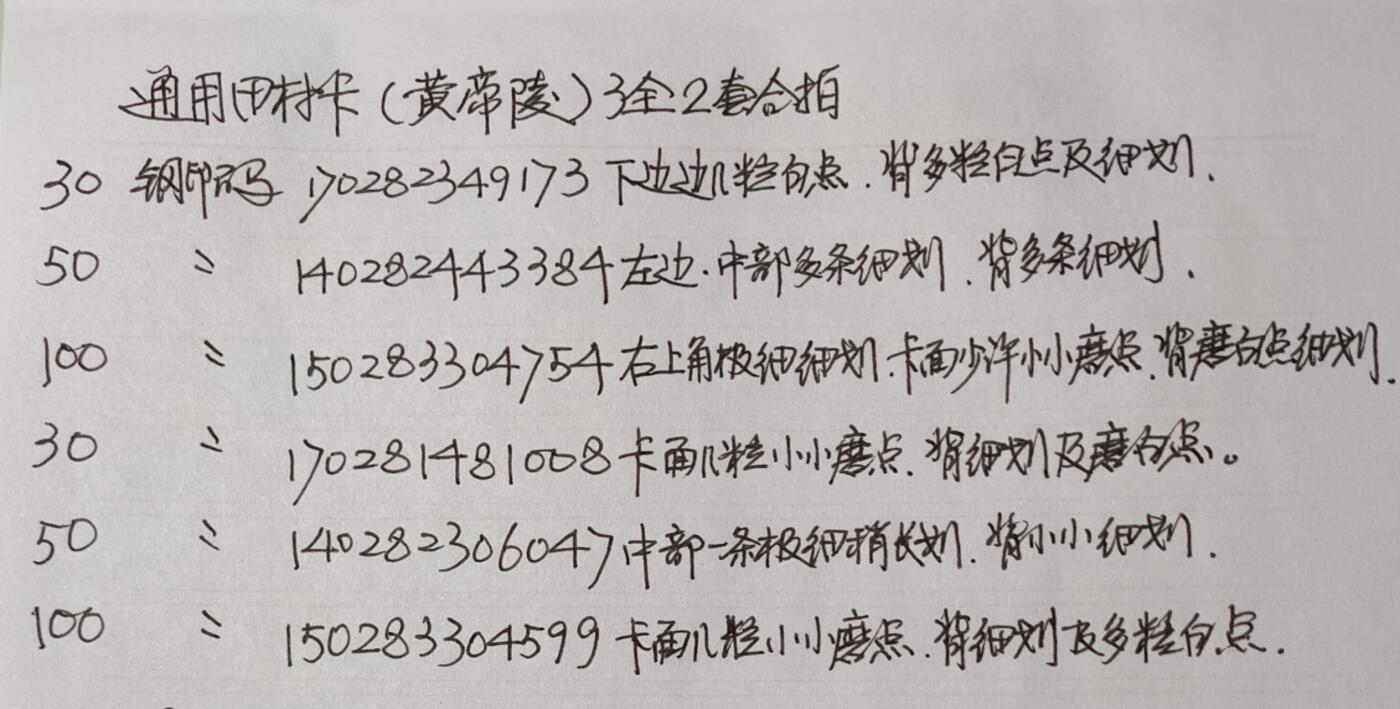 通用田村卡(黄帝陵)3全2套合拍
30 钢印码 170282349173下边边几粒白点.背多粒白点及细划.
50 〃 140282443384左边.中部多条细划.背多条细划.
100 〃 150283304754右上角极细细划.卡面少许小小磨点.背磨白点细划.
30 〃 170281481008卡面几粒小小磨点.背细划及磨白点。
50 〃 140282306047中部一条极细稍长划.背小小细划.
100 〃 150283304599卡面几粒小小磨点.背细划及多粒白点.